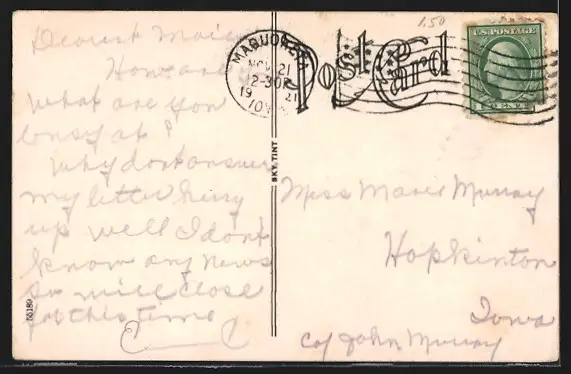 Dearest Marie
How are
what are you
busy at?
Why dont answer
my letter hurry
up well I dont
know any news
so will close
for this time
C C
55189
SKY-TINT
1.50
Post Card
MAQUOKETA
NOV 21
2-30P
19 21
IOWA
U.S. POSTAGE
1 CENT 1
Miss Marie Murray
Hopkinton
Iowa
c/o John Murray